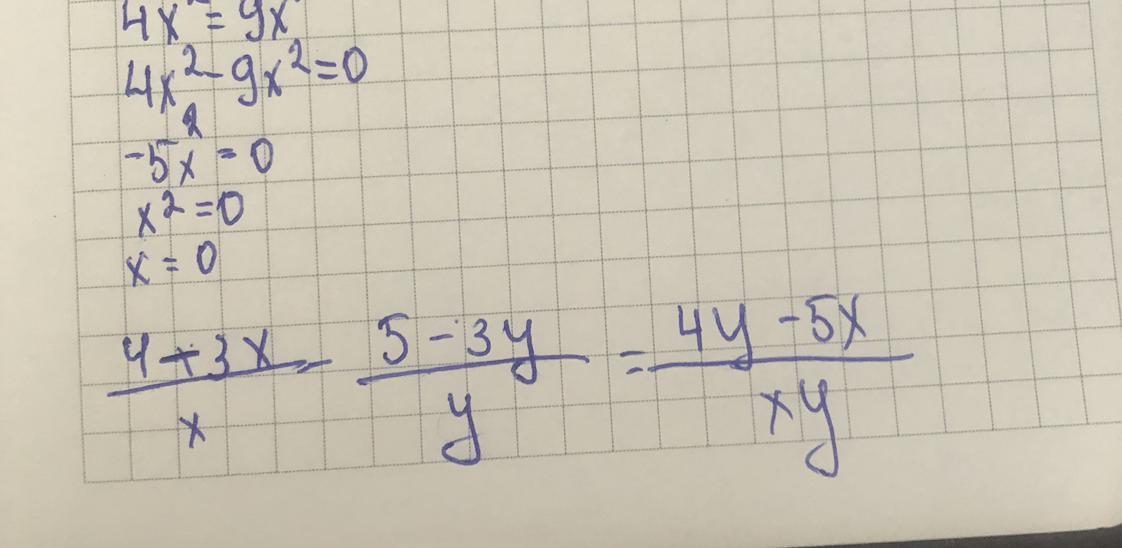 4x² = 9x
4x² - 9x² = 0
-5x² = 0
x² = 0
x = 0
(4 + 3x)/x - (5 - 3y)/y = (4y - 5x)/(xy)